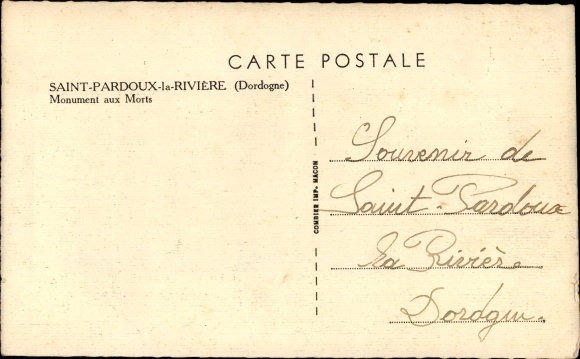 CARTE POSTALE
SAINT-PARDOUX-la-RIVIÈRE (Dordogne)
Monument aux Morts
COMBIER IMP. MACON
Souvenir de
Saint-Pardoux
la Rivière
Dordogne.